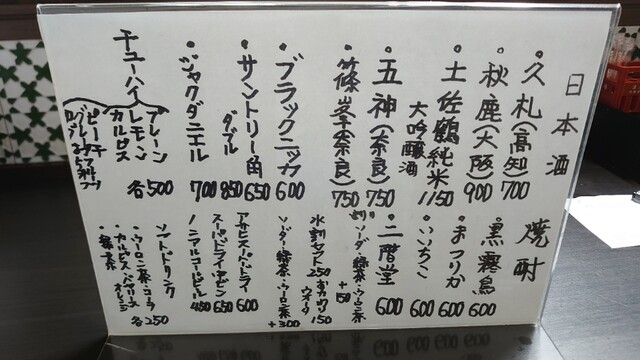 日本酒
・久礼(高知) 700
・秋鹿(大阪) 900
・土佐鶴純米
大吟醸酒 1150
・五神(奈良) 750
・篠峯(奈良) 750
・ブラックニッカ 600
・サントリー角 650
ダブル 850
・ジャクダニエル 700
チューハイ
プレーン
レモン
カルピス
各500
ピーチ
焼酎
・黒霧島 600
・まつりか 600
・いいちこ 600
・二階堂 600
割り ソーダ・緑茶・ウーロン茶 +150
水割セット 250
おかわりウオータ 150
ソーダー・緑茶・ウーロン茶 +300
アサヒスーパードライ 600
スーパードライ・
650
ノンアルコールビール 450
ソフトドリンク
・ウーロン茶・コーラ
・カルピス・
オレンジ
・緑茶
各250